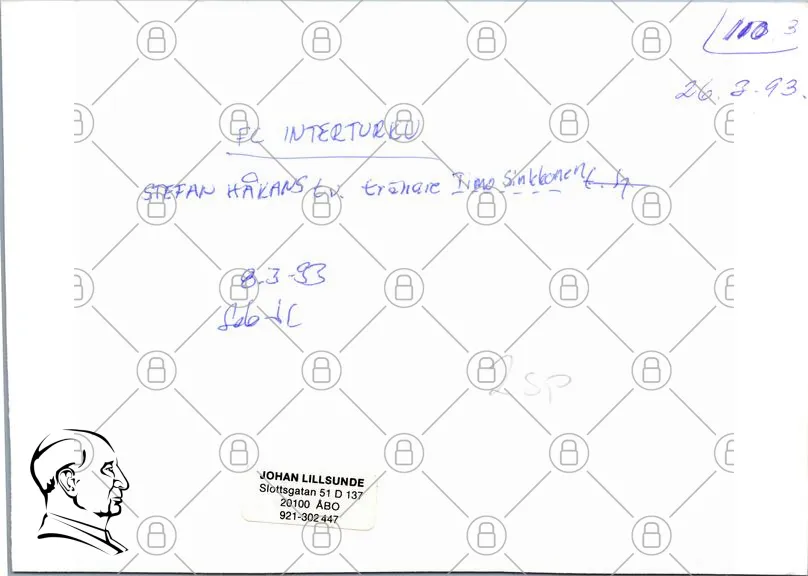 110 3
26.3.93.
FC INTERTURKU
STEFAN HÅKANS t.v. tränare Timo Sinkkonen t.h
8.3-93
2 sp
JOHAN LILLSUNDE
Slottsgatan 51 D 137
20100 ÅBO
921-302 447